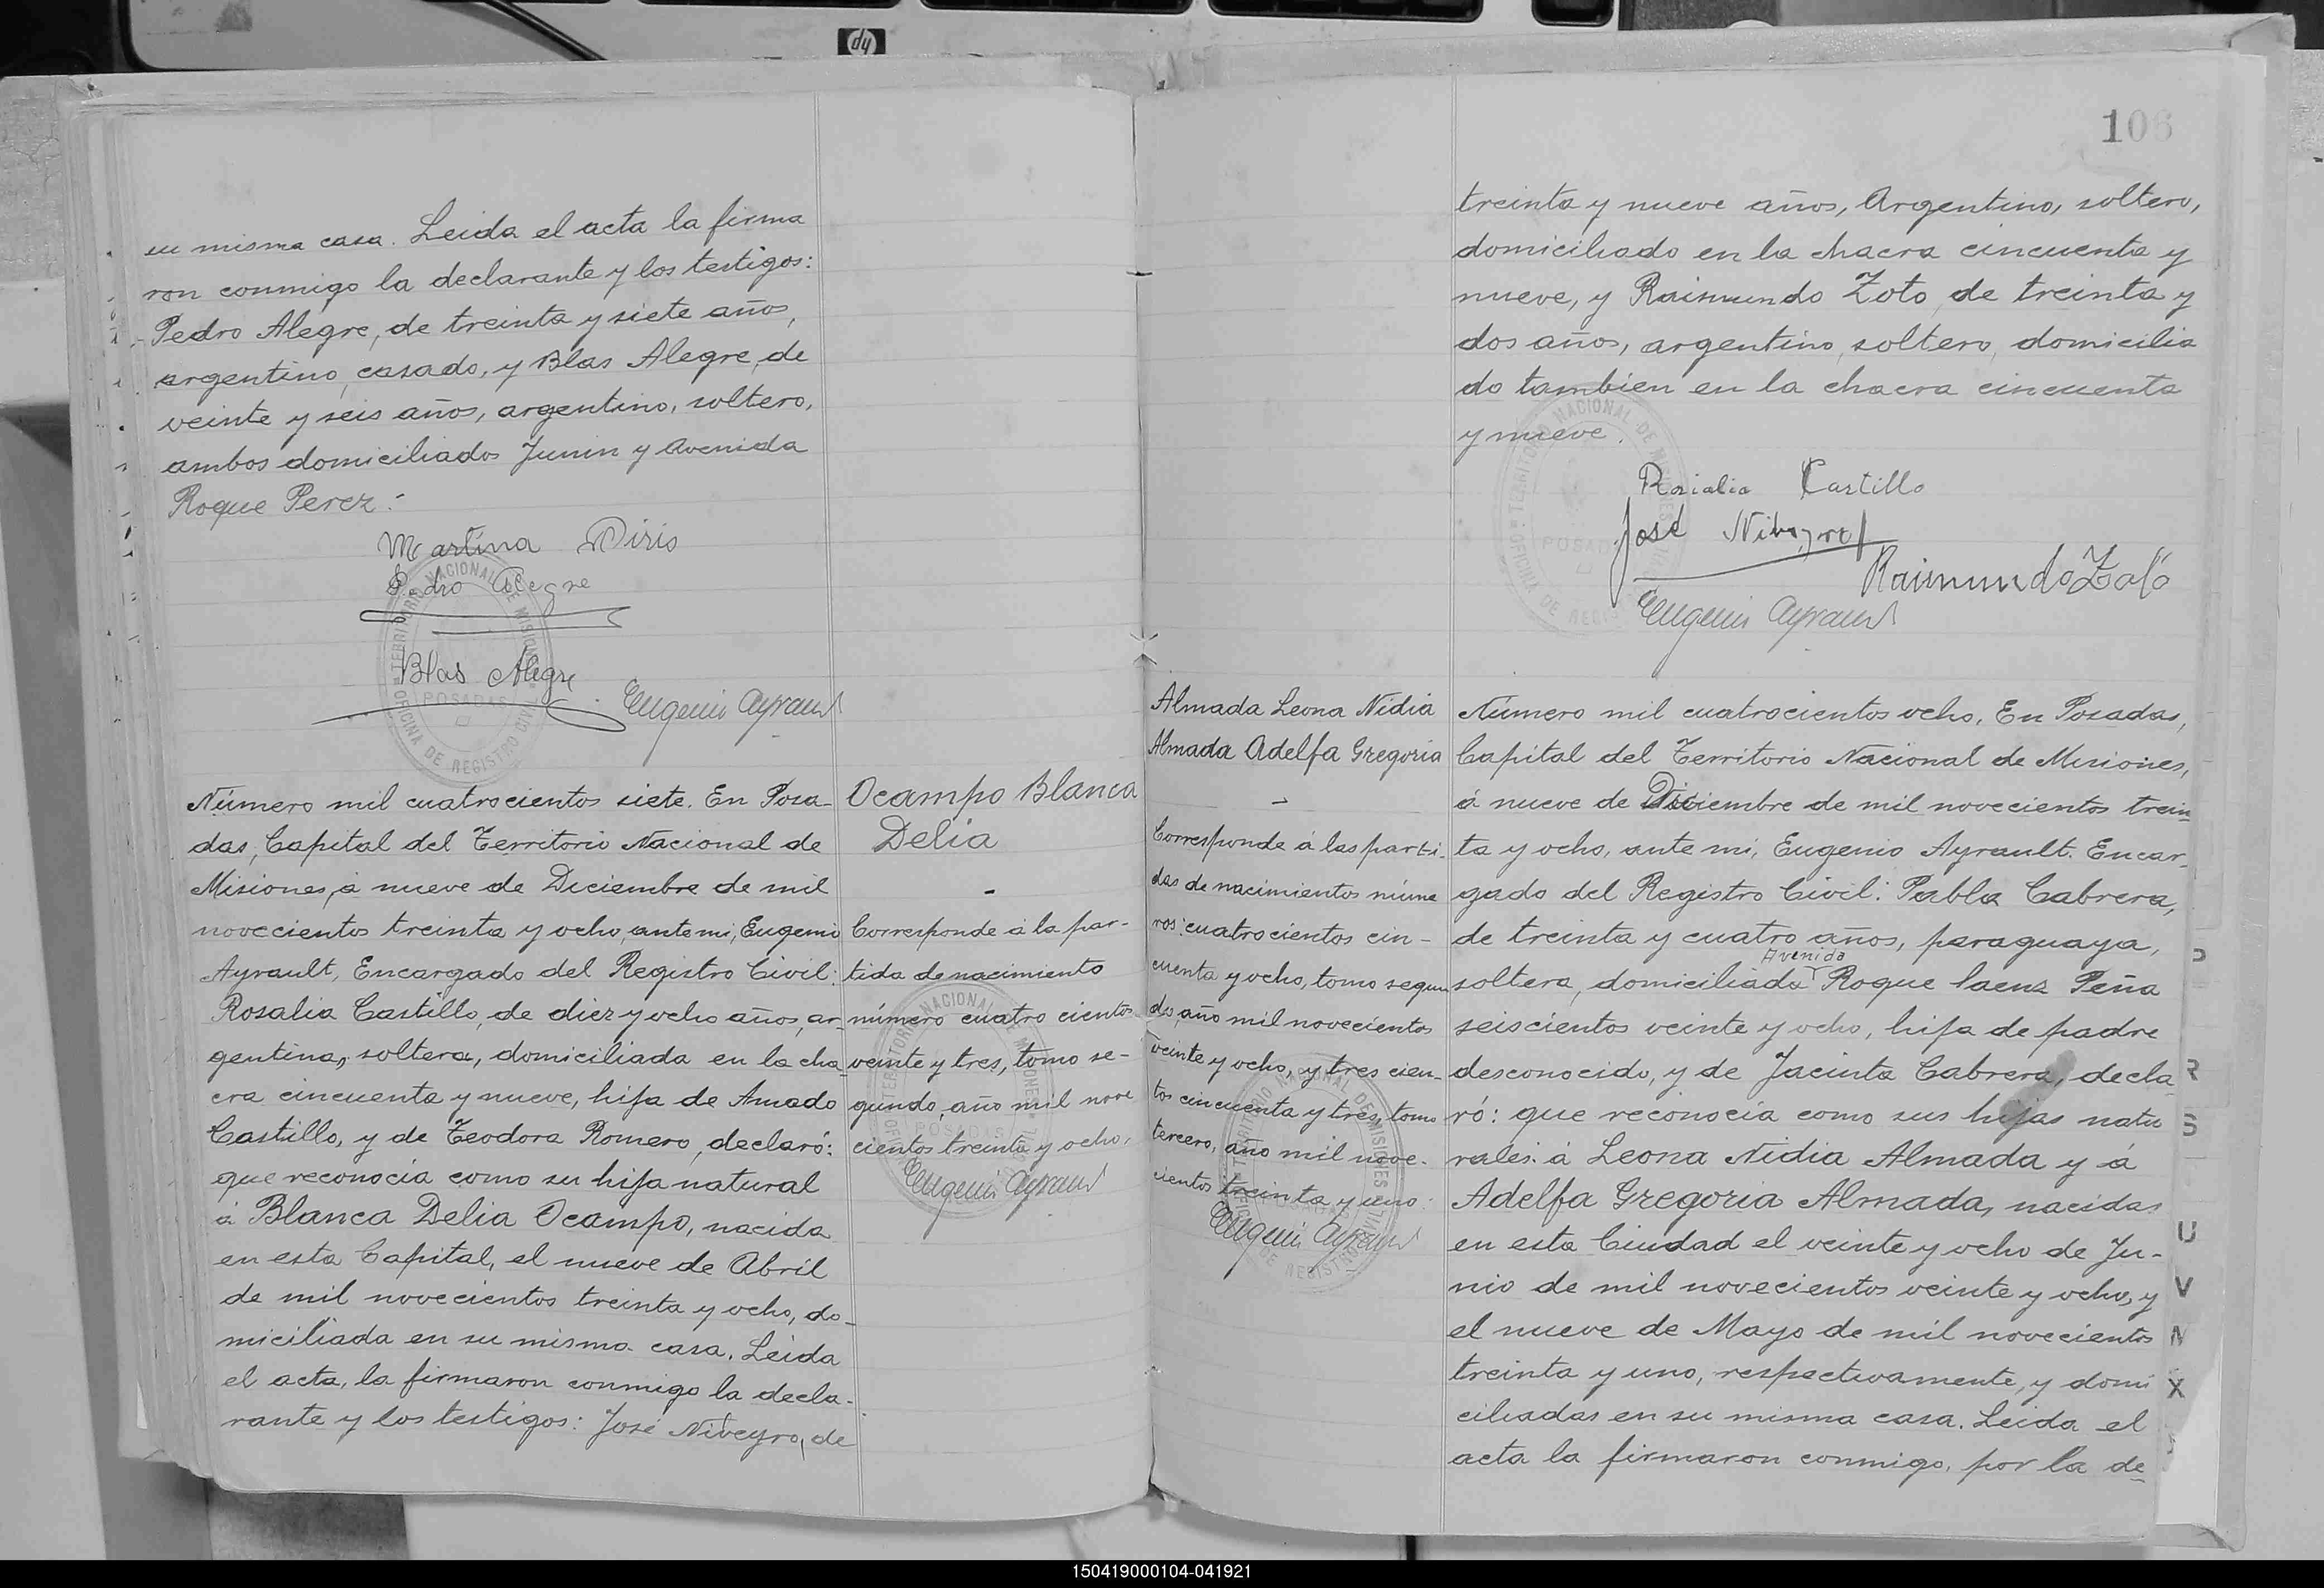 su misma casa. Leida el acta la firma
ron conmigo la declarante y los testigos:
Pedro Alegre, de treinta y siete años,
argentino, casado, y Blas Alegre, de
veinte y seis años, argentino, soltero,
ambos domiciliados Junin y Avenida
Roque Perez.-
Martina Piris
Pedro Alegre
Blas Alegre
Eugenio Ayrault
Número mil cuatrocientos siete. En Posa-
das, Capital del Territorio Nacional de
Misiones, á nueve de Diciembre de mil
novecientos treinta y ocho, ante mi, Eugenio
Ayrault, Encargado del Registro Civil:
Rosalia Castillo, de diez y ocho años, ar-
gentina, soltera, domiciliada en la cha-
cra cincuenta y nueve, hija de Amado
Castillo, y de Teodora Romero, declaró:
que reconocia como su hija natural
á Blanca Delia Ocampo, nacida
en esta Capital, el nueve de Abril
de mil novecientos treinta y ocho, do-
miciliada en su misma casa. Leida
el acta, la firmaron conmigo la decla-
rante y los testigos: José Niveyro, de
Ocampo Blanca
Delia
-
Corresponde á la par-
tida de nacimiento
número cuatro cientos
veinte y tres, tomo se-
gundo, año mil nove
cientos treinta y ocho.
Eugenio Ayrault
106
treinta y nueve años, Argentino, soltero,
domiciliado en la chacra cincuenta y
nueve, y Raimundo Zoto, de treinta y
dos años, argentino, soltero, domicilia
do tambien en la chacra cincuenta
y nueve.
Rosialia Castillo
José
Raimundo Zoto
Eugenio Ayrault
Almada Leona Nidia
Almada Adelfa Gregoria
-
Corresponde á las parti-
das de nacimientos núme
ros: cuatrocientos cin-
cuenta y ocho, tomo segun
do, año mil novecientos
veinte y ocho, y tres cien-
tos cincuenta y tres, tomo
tercero, año mil nove-
cientos treinta y uno.
Eugenio Ayrault
Número mil cuatrocientos ocho. En Posadas,
Capital del Territorio Nacional de Misiones,
á nueve de Diciembre de mil novecientos trein
ta y ocho, ante mi, Eugenio Ayrault. Encar-
gado del Registro Civil: Pabla Cabrera,
de treinta y cuatro años, paraguaya,
Avenida
soltera, domiciliada Roque Saenz Peña
seiscientos veinte y ocho, hija de padre
desconocido, y de Jacinta Cabrera, decla
ró: que reconocia como sus hijas natu
rales: á Leona Nidia Almada y á
Adelfa Gregoria Almada, nacidas
en esta Ciudad el veinte y ocho de Ju-
nio de mil novecientos veinte y ocho, y
el nueve de Mayo de mil novecientos
treinta y uno, respectivamente, y domi
ciliadas en su misma casa. Leida el
acta la firmaron conmigo, por la de
R
S
U
V
X
TERRITORIO NACIONAL DE MISIONES
OFICINA DE REGISTRO CIVIL
POSADAS
hp
150419000104-041921